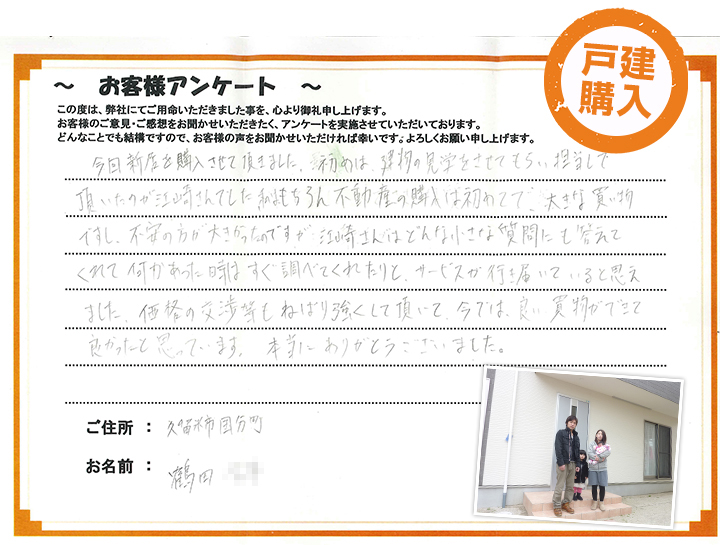 戸建
購入
～ お客様アンケート ～
この度は、弊社にてご用命いただきました事を、心より御礼申し上げます。
お客様のご意見・ご感想をお聞かせいただきたく、アンケートを実施させていただいております。
どんなことでも結構ですので、お客様の声をお聞かせいただければ幸いです。よろしくお願い申し上げます。
今回新居を購入させて頂きました。初めは、建物の見学をさせてもらい、担当して
頂いたのが江崎さんでした。私はもちろん不動産の購入は初めてで、大きな買い物
ですし、不安の方が大きかったのですが、江崎さんはどんな小さな質問にも答えて
くれて何かあった時はすぐ調べてくれたりと、サービスが行き届いていると思え
ました。価格の交渉等もねばり強くして頂いて、今では、良い買物ができて
良かったと思っています。本当にありがとうございました。
ご住所 ： 久留米市国分町
お名前 ： 鶴田